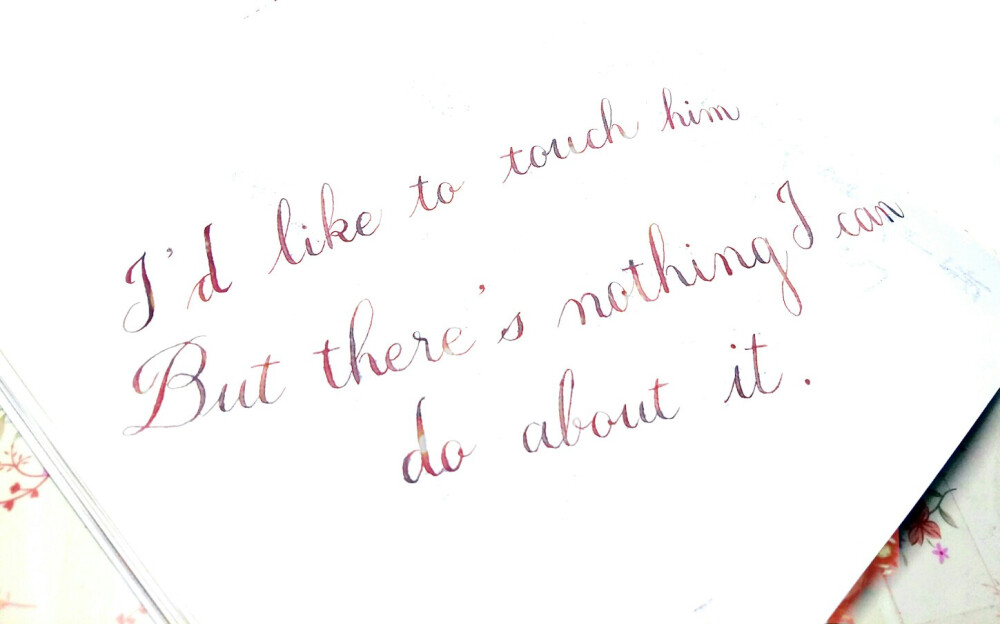 I'd like to touch him
But there's nothing I can
do about it.